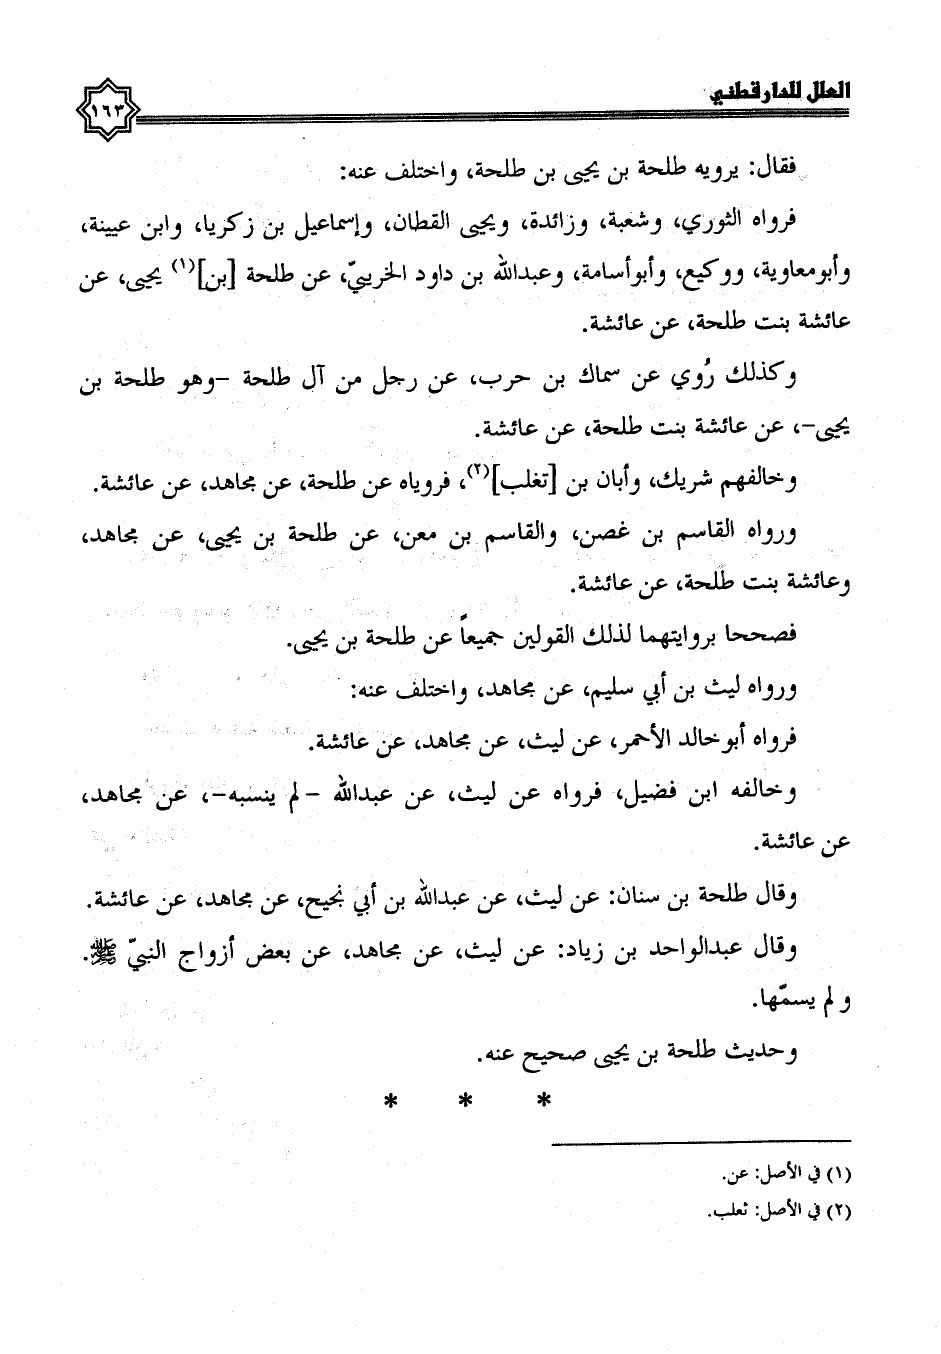 العلل للدارقطني
١٦٣
فقال: يرويه طلحة بن يحيى بن طلحة، واختلف عنه:
فرواه الثوري، وشعبة، وزائدة، ويحيى القطان، وإسماعيل بن زكريا، وابن عيينة،
وأبومعاوية، ووكيع، وأبوأسامة، وعبدالله بن داود الخريبيّ، عن طلحة [بن](١) يحيى، عن
عائشة بنت طلحة، عن عائشة.
وكذلك رُوي عن سماك بن حرب، عن رجل من آل طلحة -وهو طلحة بن
يحيى-، عن عائشة بنت طلحة، عن عائشة.
وخالفهم شريك، وأبان بن [تغلب](٢)، فروياه عن طلحة، عن مجاهد، عن عائشة.
ورواه القاسم بن غصن، والقاسم بن معن، عن طلحة بن يحيى، عن مجاهد،
وعائشة بنت طلحة، عن عائشة.
فصححا بروايتهما لذلك القولين جميعاً عن طلحة بن يحيى.
ورواه ليث بن أبي سليم، عن مجاهد، واختلف عنه:
فرواه أبوخالد الأحمر، عن ليث، عن مجاهد، عن عائشة.
وخالفه ابن فضيل، فرواه عن ليث، عن عبدالله -لم ينسبه-، عن مجاهد،
عن عائشة.
وقال طلحة بن سنان: عن ليث، عن عبدالله بن أبي نجيح، عن مجاهد، عن عائشة.
وقال عبدالواحد بن زياد: عن ليث، عن مجاهد، عن بعض أزواج النبيّ ﷺ.
ولم يسمّها.
وحديث طلحة بن يحيى صحيح عنه.
* * *
(١) في الأصل: عن.
(٢) في الأصل: ثعلب.